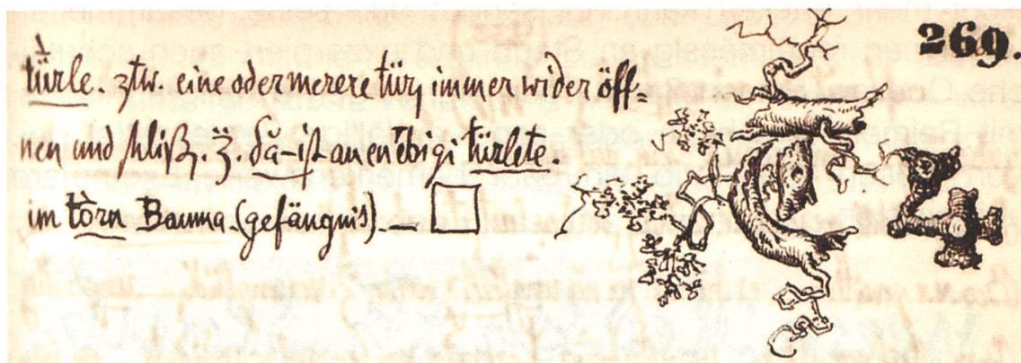 269.
türle. ztw. eine oder merere türn immer wider öff=
nen und schließn. z. dä-ist au en ebigi türlete.
im törn Bauma. (gefängnis) —